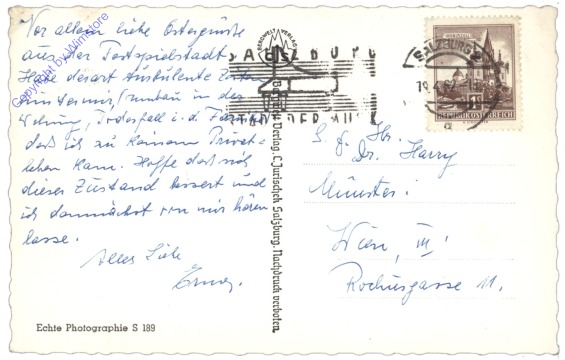 Vor allem liebe Ostergrüße
aus der Festspielstadt.
Habe derart
in der
Wohnung, Todesfall i. d. Familie
daß ich zu keinem Privat-
leben kam. Hoffe daß sich
dieser Zustand bessert und
ich demnächst von mir hören
lasse.
Alles Liebe
Erna
Echte Photographie S 189
Copyright by Winnstore
BERGWELT VERLAG
Bergwelt Verlag, C. Jurischek Salzburg. Nachdruck verboten.
SALZBURG
STADT DER MUSIK
SALZBURG 2
REPUBLIK ÖSTERREICH
S. g. Hr.
Dr. Harry
Münster
Wien, III
Rochusgasse 11.